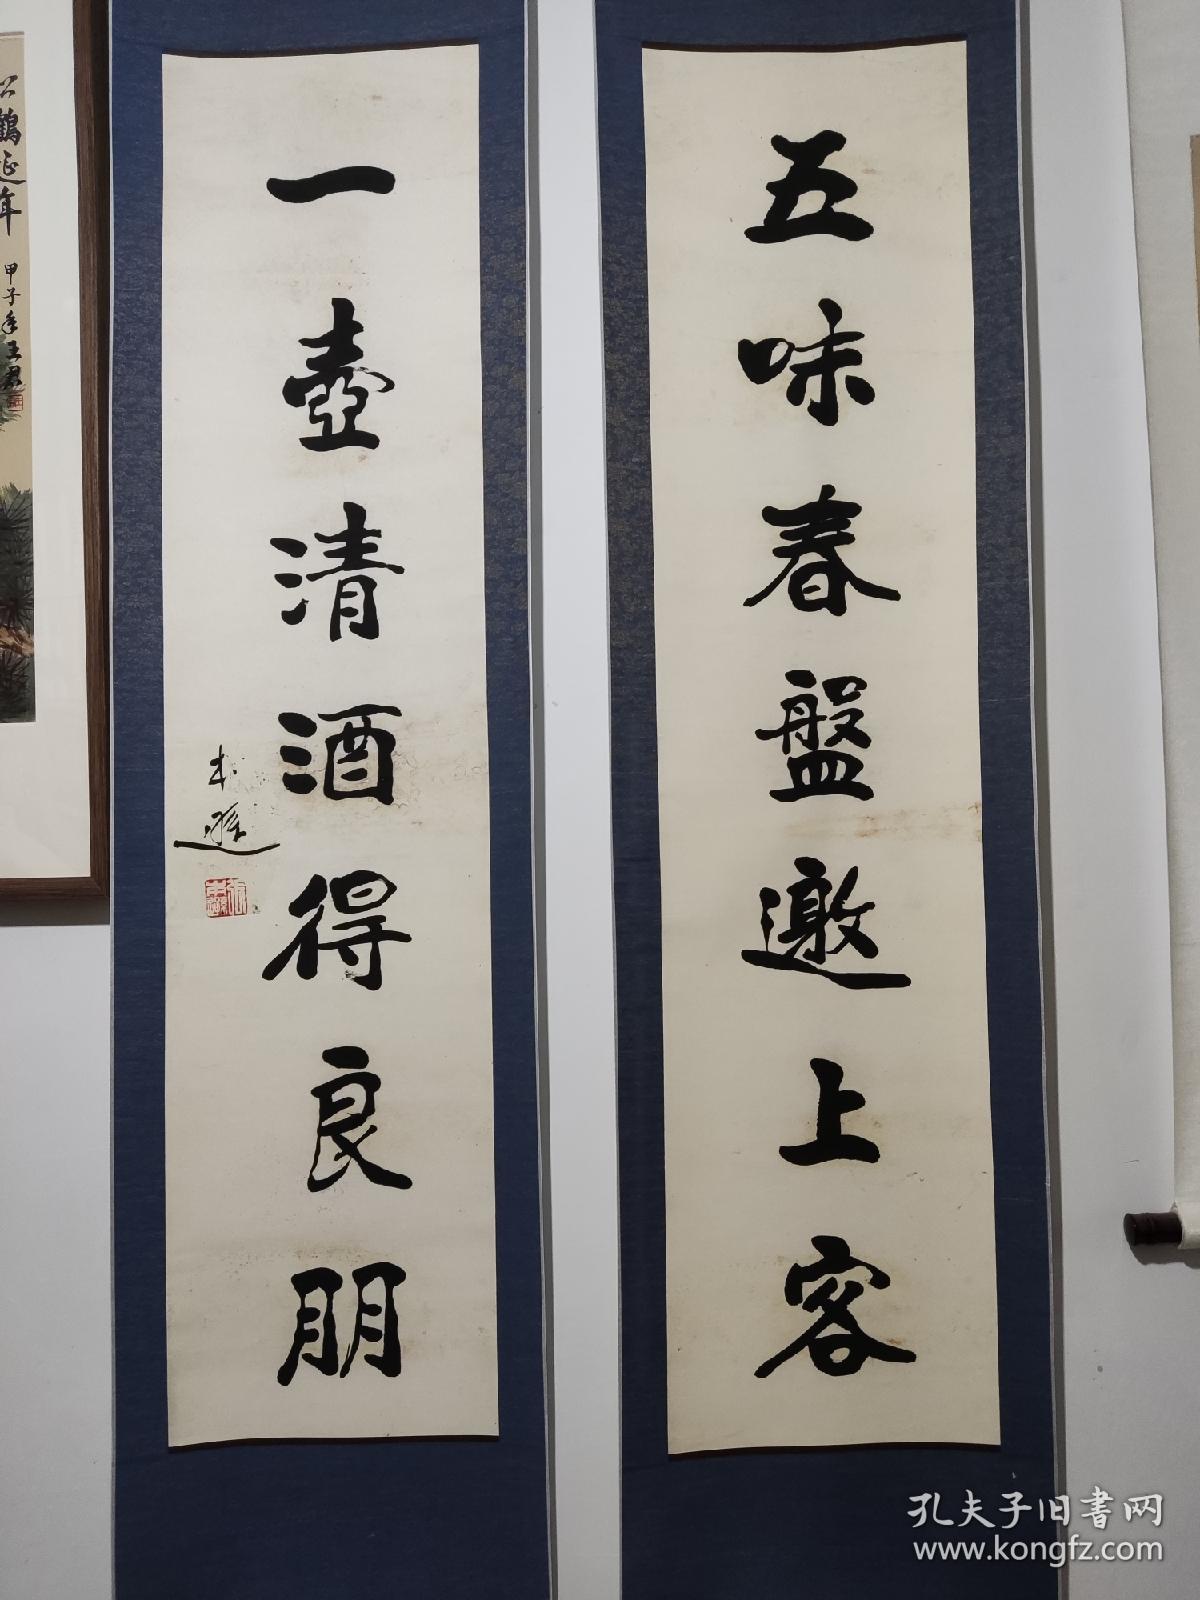 五味春盤邀上客
一壺清酒得良朋
本遜
鶴延年
甲子年王君
孔夫子旧書网
www.kongfz.com